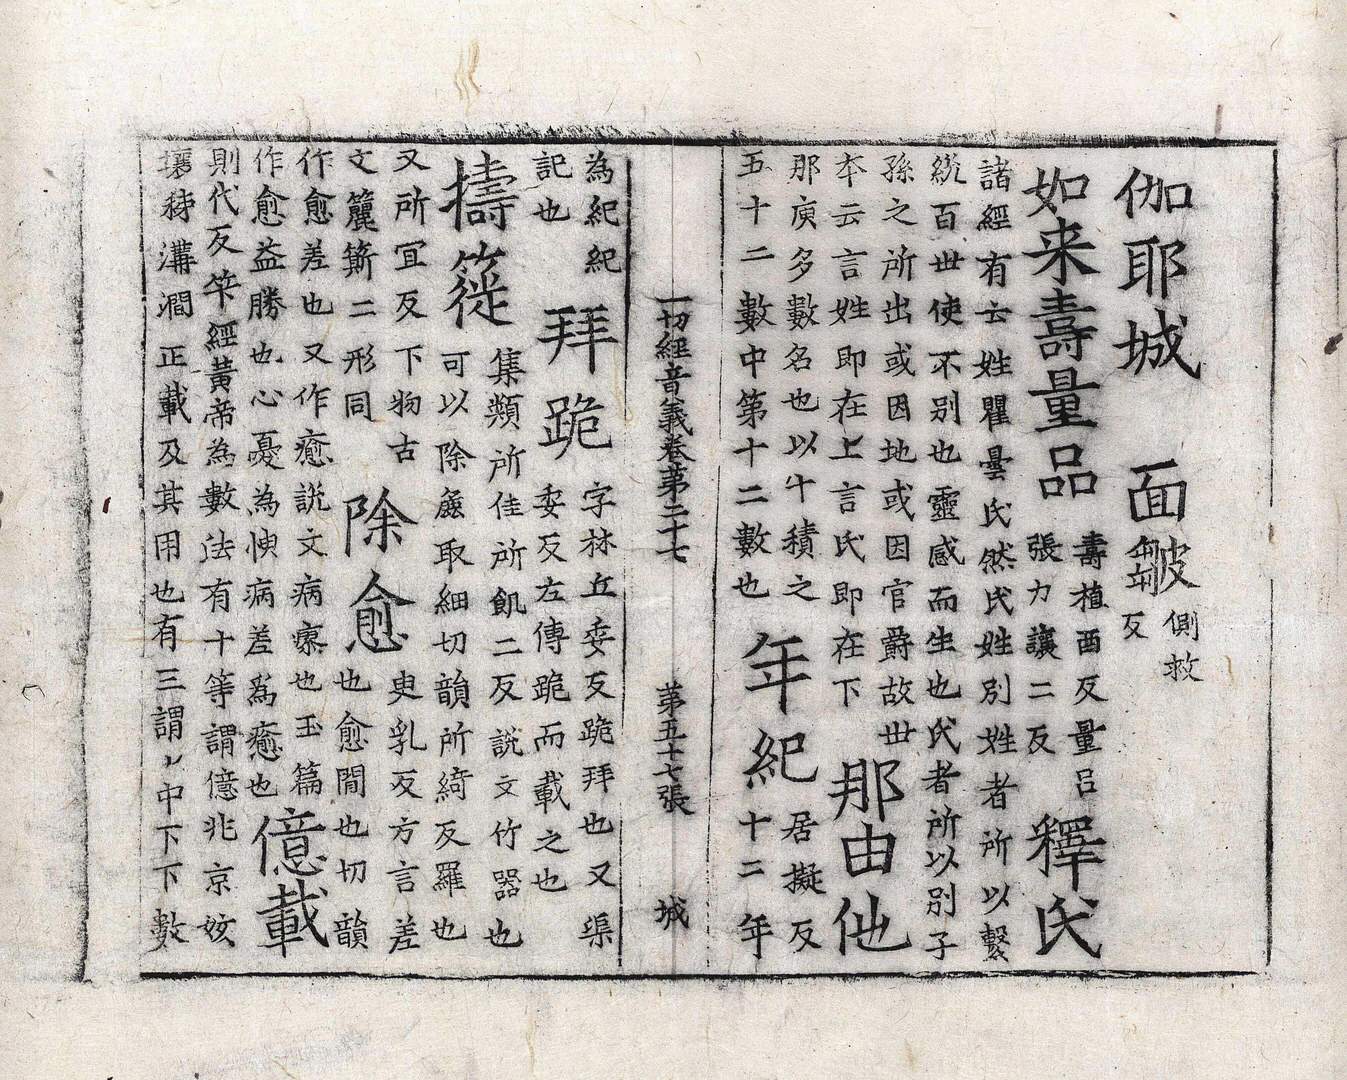 伽耶城　面皺側救反
如来壽量品壽植酉反量呂張力讓二反　釋氏
諸經有云姓瞿曇氏然氏姓別姓者所以繫
統百世使不別也靈感而生也氏者所以別子
孫之所出或因地或因官爵故世
本云言姓即在上言氏即在下　那由他
那庾多數名也以十積之
五十二數中第十二數也　年紀居擬反十二年
一切經音義卷第二十七　第五十七張　城
為紀紀記也　拜跪字林丘委反跪拜也又渠委反左傳跪而載之也
擣簁集類所佳所飢二反說文竹器也可以除麁取細切韻所綺反羅也
又所宜反下物古
文簏簛二形同　除愈臾乳反方言差也愈間也切韻
作愈差也又作癒說文病瘳也玉篇
作愈益勝也心憂為悇病差為癒也　億載
則代反筭經黃帝為數法有十等謂億兆京姟
壤秭溝澗正載及其用也有三謂上中下下數